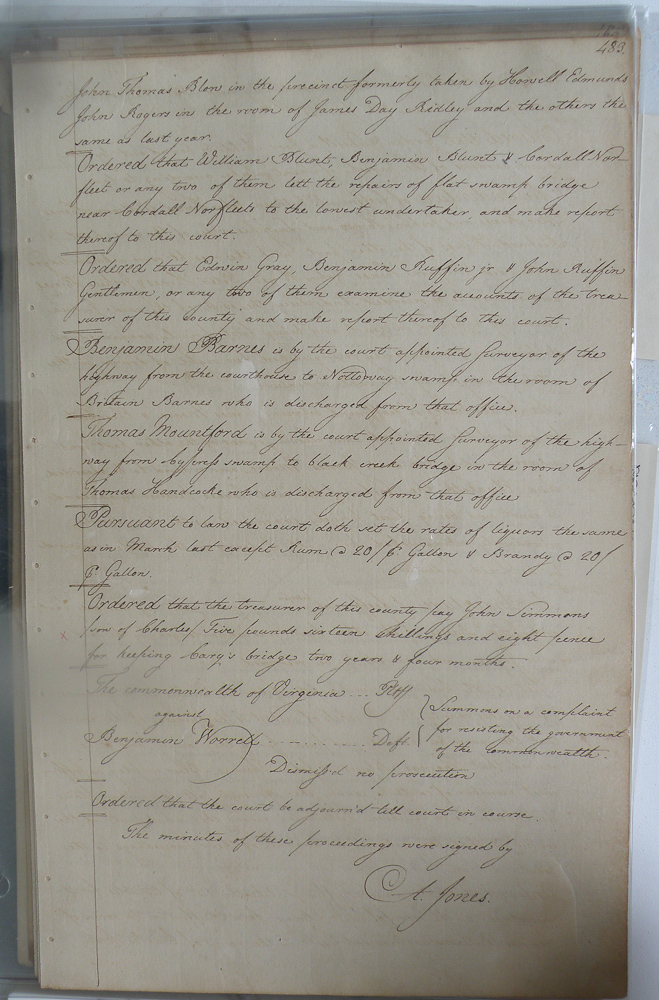 483.
John Thomas Blow in the precinct formerly taken by Howell Edmunds
John Rogers in the room of James Day Ridley and the others the
same as last year.
Ordered that William Blunt, Benjamin Blunt & Cordall Nor-
fleet or any two of them lett the repairs of flat swamp bridge
near Cordall Norfleets to the lowest undertaker, and make report
thereof to this court.
Ordered that Edwin Gray, Benjamin Ruffin jr & John Ruffin
Gentlemen, or any two of them examine the accounts of the trea-
surer of this county and make report thereof to this court.
Benjamin Barnes is by the court appointed Surveyor of the
highway from the courthouse to Nottoway swamp in the room of
Britain Barnes who is discharged from that office.
Thomas Mountford is by the court appointed Surveyor of the high-
way from Cypress swamp to black creek bridge in the room of
Thomas Handcocke who is discharged from that office
Pursuant to law the court doth set the rates of liquors the same
as in March last except Rum @ 20/ ⅌ Gallon & Brandy @ 20/
⅌ Gallon.
Ordered that the treasurer of this county pay John Simmons
/son of Charles/ Five pounds sixteen shillings and eight pence
for keeping Cary's bridge two years & four months.
The commonwealth of Virginia ... Pltff
against
Benjamin Worrell - - ........ Deft.
Summons on a complaint
for resisting the government
of the commonwealth.
Dismissd no prosecution
Ordered that the court be adjourn'd till court in course.
The minutes of these proceedings were signed by
A. Jones.